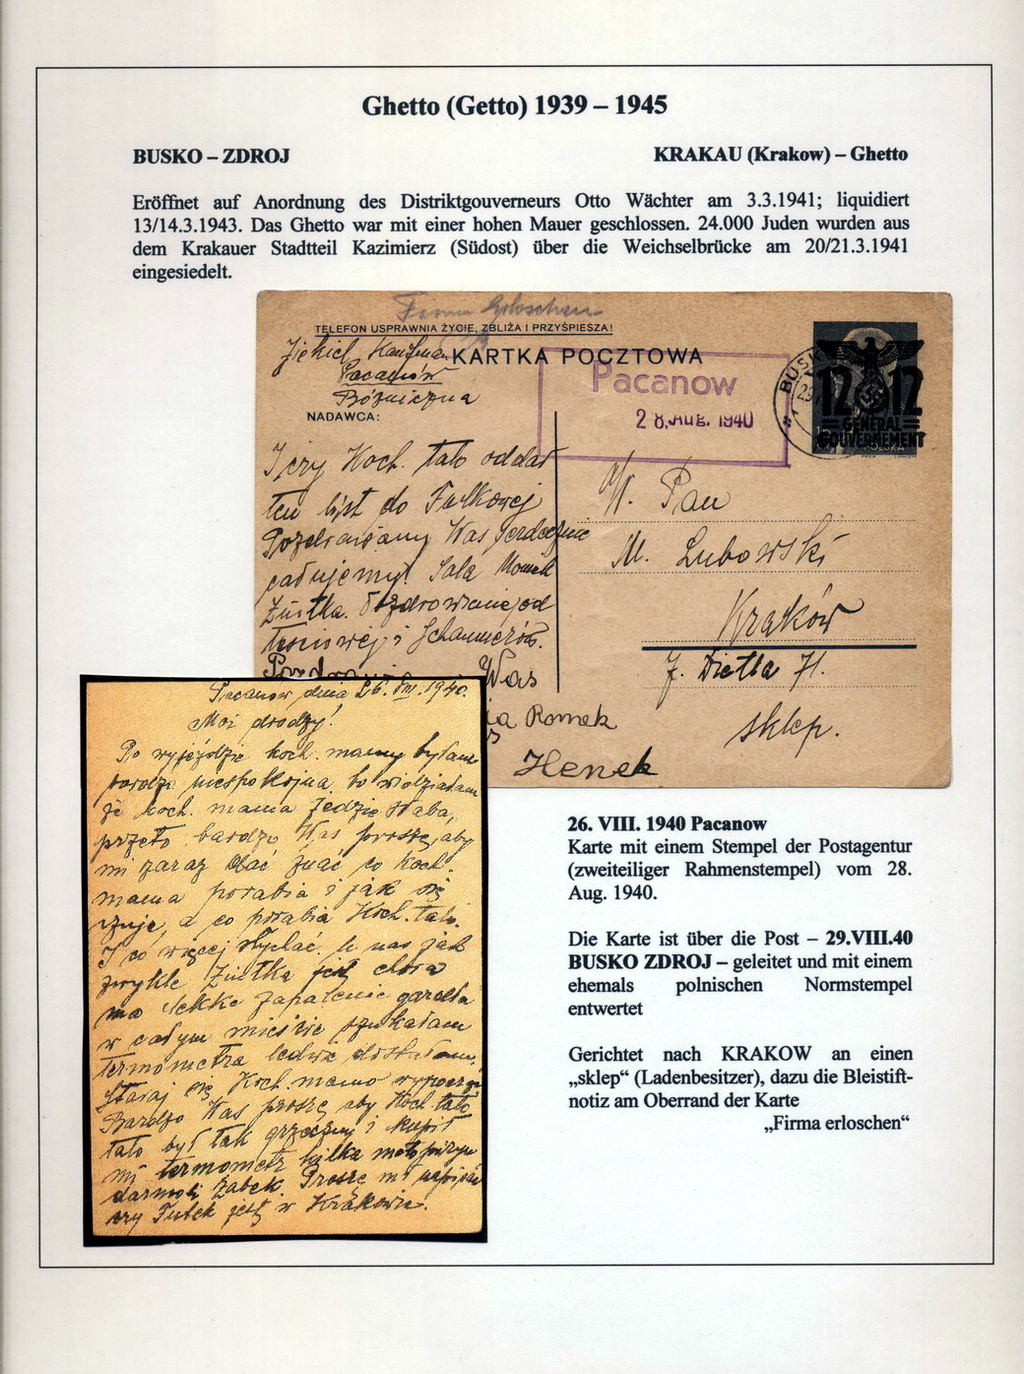 Ghetto (Getto) 1939 – 1945
BUSKO – ZDROJ
KRAKAU (Krakow) – Ghetto
Eröffnet auf Anordnung des Distriktgouverneurs Otto Wächter am 3.3.1941; liquidiert
13/14.3.1943. Das Ghetto war mit einer hohen Mauer geschlossen. 24.000 Juden wurden aus
dem Krakauer Stadtteil Kazimierz (Südost) über die Weichselbrücke am 20/21.3.1941
eingesiedelt.
Firma Erloschen
TELEFON USPRAWNIA ŻYCIE, ZBLIŻA I PRZYŚPIESZA!
KARTKA POCZTOWA
Kaufman
Pacanów
Bóżniczna
NADAWCA:
Pacanow
28. Aug. 1940
BUSK
29
12 12
GENERAL
GOUVERNEMENT
POLSKA
I czy Koch. tato oddał
ten list do Falkowej
Pozdrawiamy Was serdecznie
całujemy! Sala Moniek
Ziutka. Pozdrowienie od
teściowej i
Was
Romek
Henek
W. Pan
M. Lubowski
Kraków
J. Dietla 71.
sklep.
Pacanów, dnia 26. VIII. 1940.
Moi drodzy!
Po wyjeździe koch. mamy byłam
bardzo niespokojna, bo widziałam
że koch. mama jedzie słaba,
przeto bardzo Was proszę, aby
mi zaraz dać znać co koch.
mama porabia i jak się
czuje, a co porabia Koch. tato.
I co więcej słychać. U nas jak
zwykle Ziutka jest chora
ma lekkie zapalenie gardła
w całym mieście szukałam
termometra ledwie dostałam.
Staraj się Koch. mamo
Bardzo Was proszę aby Koch. tato
tato był tak grzeczny i kupił
mi termometr kilka
Proszę mi napisać
czy jest w Krakowie.
26. VIII. 1940 Pacanow
Karte mit einem Stempel der Postagentur
(zweiteiliger Rahmenstempel) vom 28.
Aug. 1940.
Die Karte ist über die Post – 29.VIII.40
BUSKO ZDROJ – geleitet und mit einem
ehemals polnischen Normstempel
entwertet
Gerichtet nach KRAKOW an einen
„sklep“ (Ladenbesitzer), dazu die Bleistift-
notiz am Oberrand der Karte
„Firma erloschen“